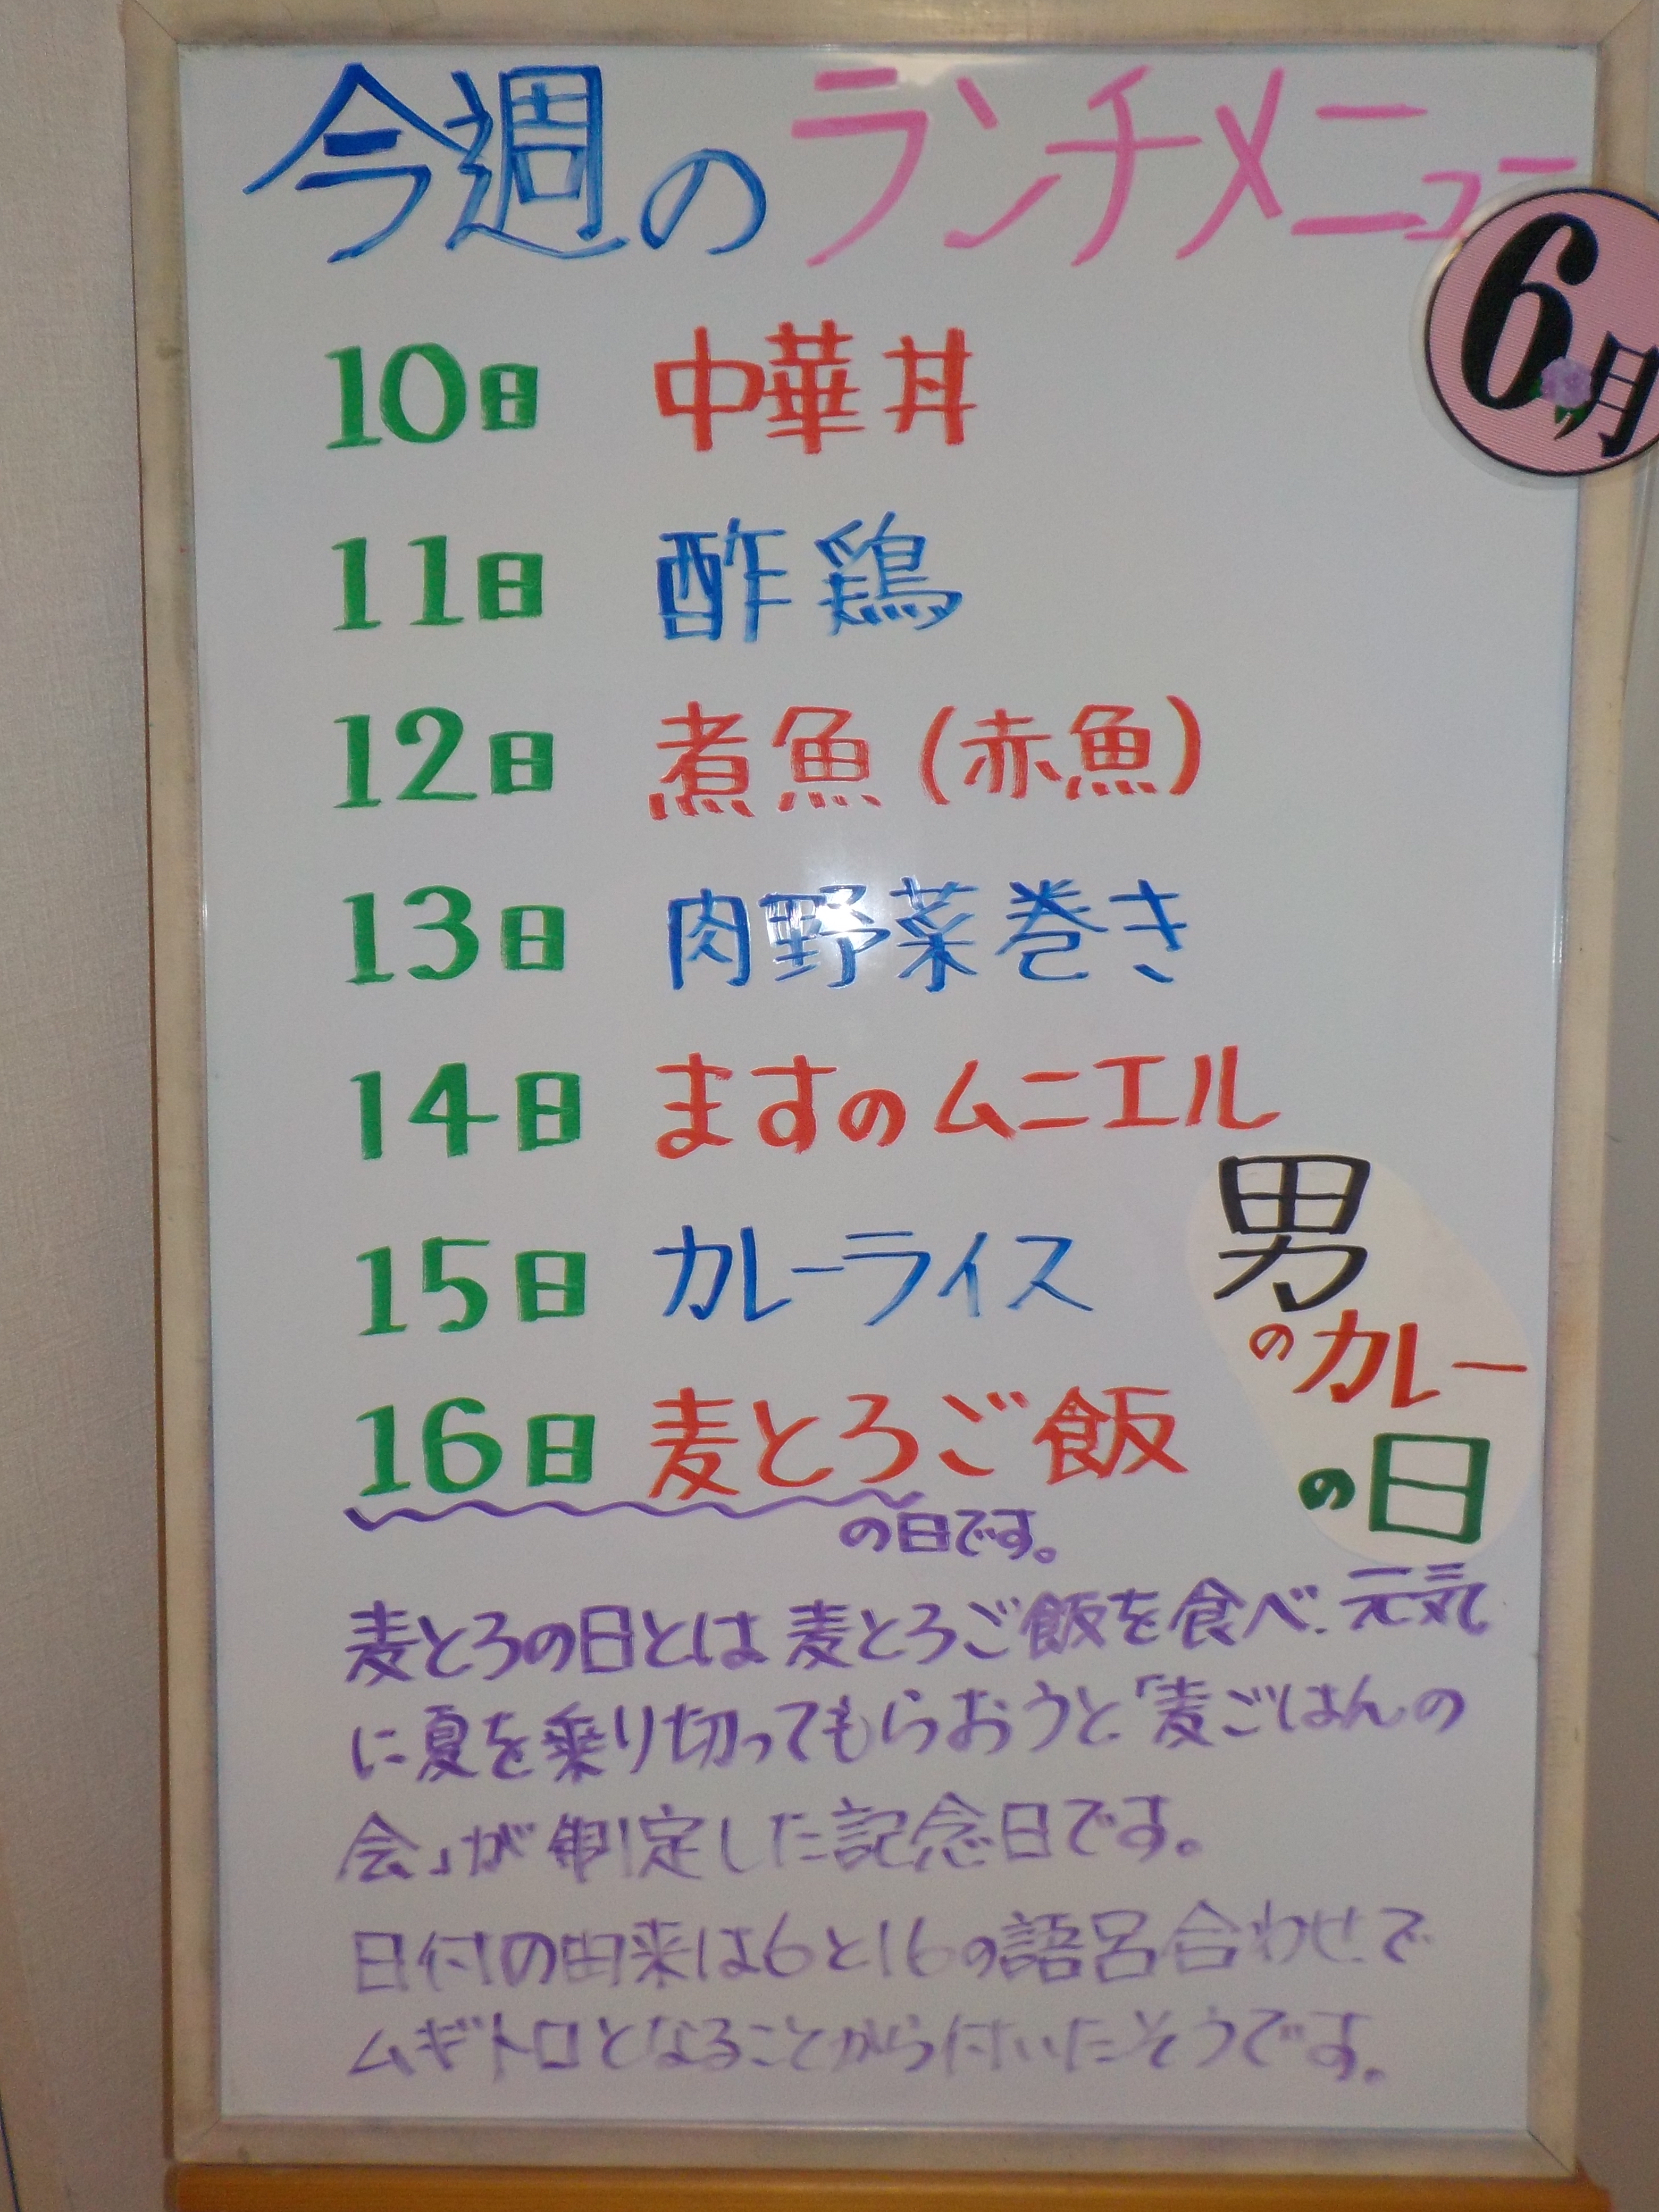 今週のランチメニュー
6月
10日 中華丼
11日 酢鶏
12日 煮魚(赤魚)
13日 肉野菜巻き
14日 ますのムニエル
15日 カレーライス
男
のカレー
の日
16日 麦とろご飯
の日です。
麦とろの日とは麦とろご飯を食べ、元気
に夏を乗り切ってもらおうと「麦ごはんの
会」が制定した記念日です。
日付の由来は6と16の語呂合わせで
ムギトロとなることから付いたそうです。